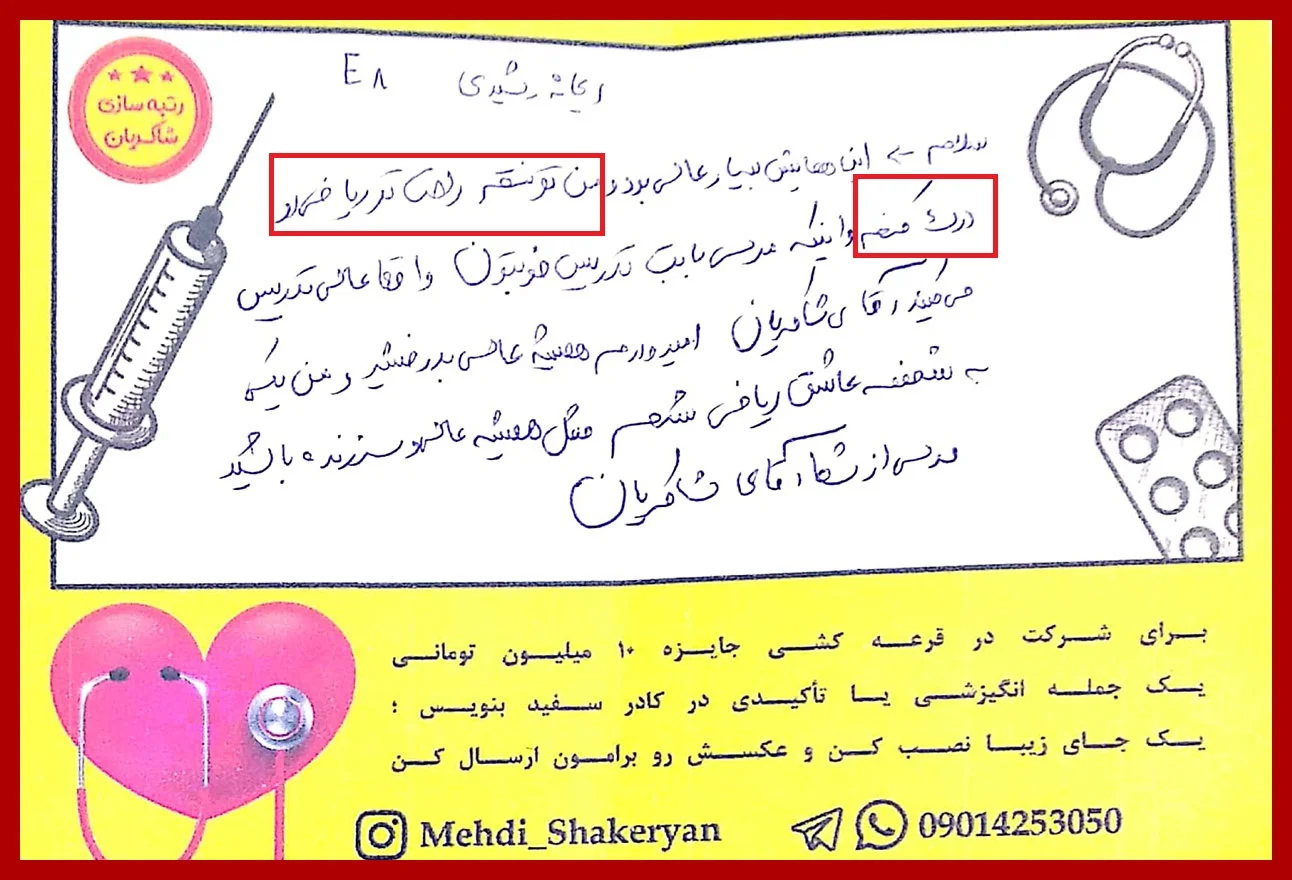 رتبه سازی
شاکریان
ریحانه رشیدی E۸
سلام ← این همایش بسیار عالی بود و من تونستم راحت تر ریاضی رو
درک کنم و اینکه مرسی بابت تدریس خوبتون واقعا عالی تدریس
می کنید آقای شاکریان امیدوارم همیشه عالی بدرخشید و من یکی
به شخصه عاشق ریاضی شدم مثل همیشه عالی و سرزنده باشید
مرسی از شما آقای شاکریان
برای شرکت در قرعه کشی جایزه ۱۰ میلیون تومانی
یک جمله انگیزشی یا تأکیدی در کادر سفید بنویس ؛
یک جای زیبا نصب کن و عکسش رو برامون ارسال کن
Mehdi_Shakeryan 09014253050